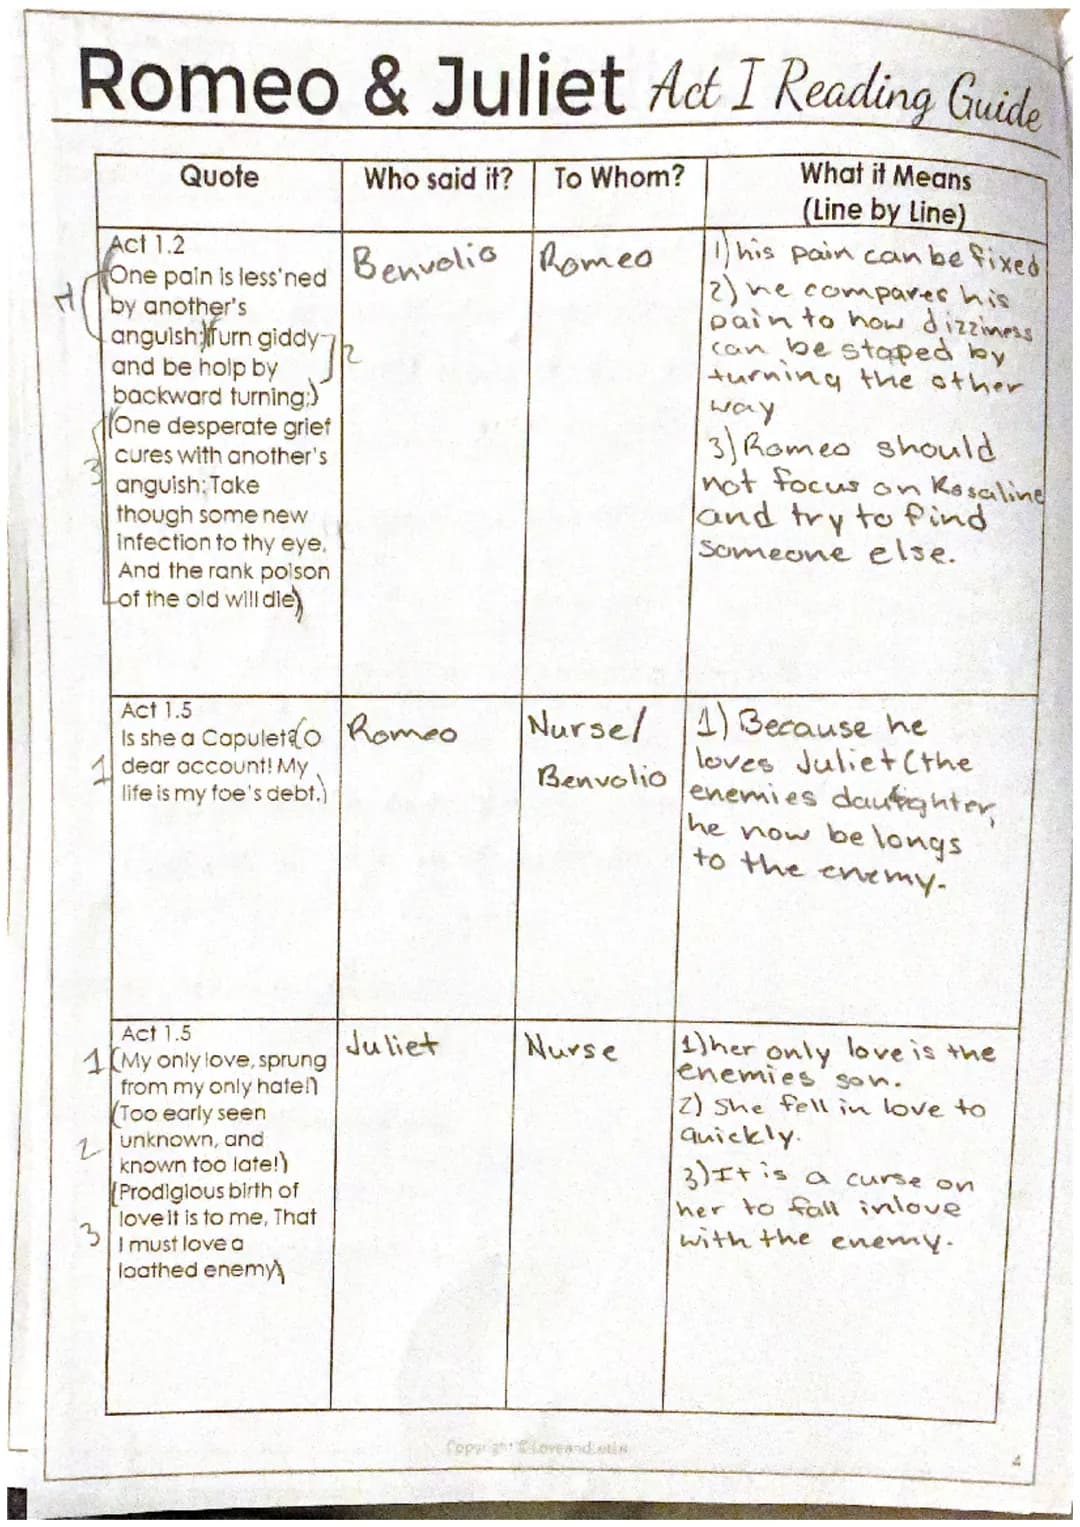 Romeo & Juliet Act I Reading Guide
Quote
Who said it?
To Whom?
What it Means
(Line by Line)
Act 1.2
One pain is less'ned
by another's
anguish; Turn giddy
and be holp by
backward turning;)
(One desperate grief
cures with another's
anguish; Take
though some new
infection to thy eye,
And the rank poison
of the old will die)
1
2
3
Benvolio
Romeo
1) his pain can be fixed
2) he compares his
pain to how dizziness
can be stoped by
turning the other
way
3) Romeo should
not focus on Rosaline
and try to find
someone else.
Act 1.5
Is she a Capulet? (O
dear account! My
life is my foe's debt.)
1
Romeo
Nurse/
Benvolio
1) Because he
loves Juliet (the
enemies daughter,
he now belongs
to the enemy.
Act 1.5
1 (My only love, sprung
from my only hate!)
(Too early seen
2 unknown, and
known too late!)
(Prodigious birth of
3 love it is to me, That
I must love a
loathed enemy)
Juliet
Nurse
1) her only love is the
enemies son.
2) She fell in love to
quickly.
3) It is a curse on
her to fall inlove
with the enemy.
4